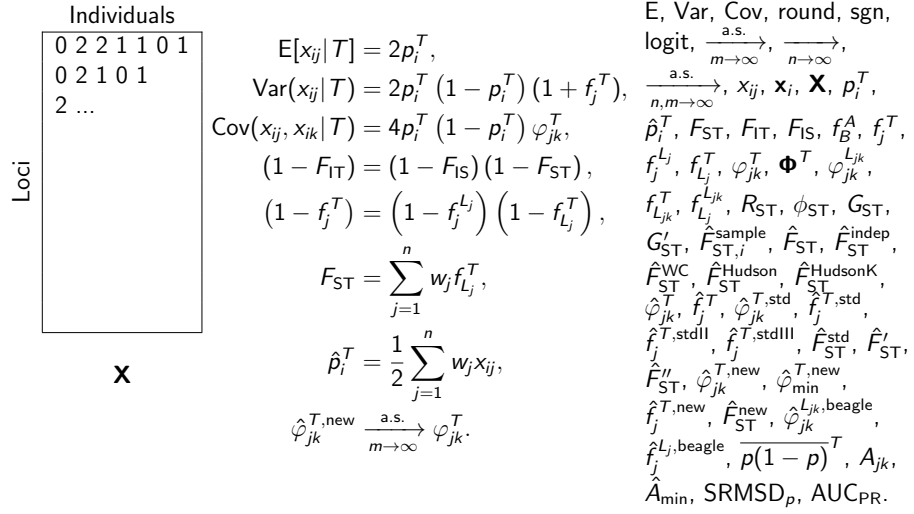 Individuals
0 2 2 1 1 0 1
0 2 1 0 1
2 ...
Loci
X
E[x_{ij}|T] = 2p_i^T,
Var(x_{ij}|T) = 2p_i^T (1 − p_i^T) (1 + f_j^T),
Cov(x_{ij}, x_{ik}|T) = 4p_i^T (1 − p_i^T) φ_{jk}^T,
(1 − F_{IT}) = (1 − F_{IS}) (1 − F_{ST}),
(1 − f_j^T) = (1 − f_j^{L_j}) (1 − f_{L_j}^T),
F_{ST} = ∑_{j=1}^n w_j f_{L_j}^T,
p̂_i^T = \frac{1}{2} ∑_{j=1}^n w_j x_{ij},
φ̂_{jk}^{T,new} \xrightarrow[m→∞]{a.s.} φ_{jk}^T.
E, Var, Cov, round, sgn,
logit, \xrightarrow[m→∞]{a.s.}, \xrightarrow[n→∞]{},
\xrightarrow[n,m→∞]{a.s.}, x_{ij}, 𝐱_i, 𝐗, p_i^T,
p̂_i^T, F_{ST}, F_{IT}, F_{IS}, f_B^A, f_j^T,
f_j^{L_j}, f_{L_j}^T, φ_{jk}^T, 𝚽^T, φ_{jk}^{L_{jk}},
f_{L_{jk}}^T, f_{L_j}^{L_{jk}}, R_{ST}, ϕ_{ST}, G_{ST},
G′_{ST}, F̂_{ST,i}^{sample}, F̂_{ST}, F̂_{ST}^{indep},
F̂_{ST}^{WC}, F̂_{ST}^{Hudson}, F̂_{ST}^{HudsonK},
φ̂_{jk}^T, f̂_j^T, φ̂_{jk}^{T,std}, f̂_j^{T,std},
f̂_j^{T,stdII}, f̂_j^{T,stdIII}, F̂_{ST}^{std}, F̂′_{ST},
F̂″_{ST}, φ̂_{jk}^{T,new}, φ̂_{min}^{T,new},
f̂_j^{T,new}, F̂_{ST}^{new}, φ̂_{jk}^{L_{jk},beagle},
f̂_j^{L_j,beagle}, \overline{p(1 − p)}^T, A_{jk},
Â_{min}, SRMSD_p, AUC_{PR}.